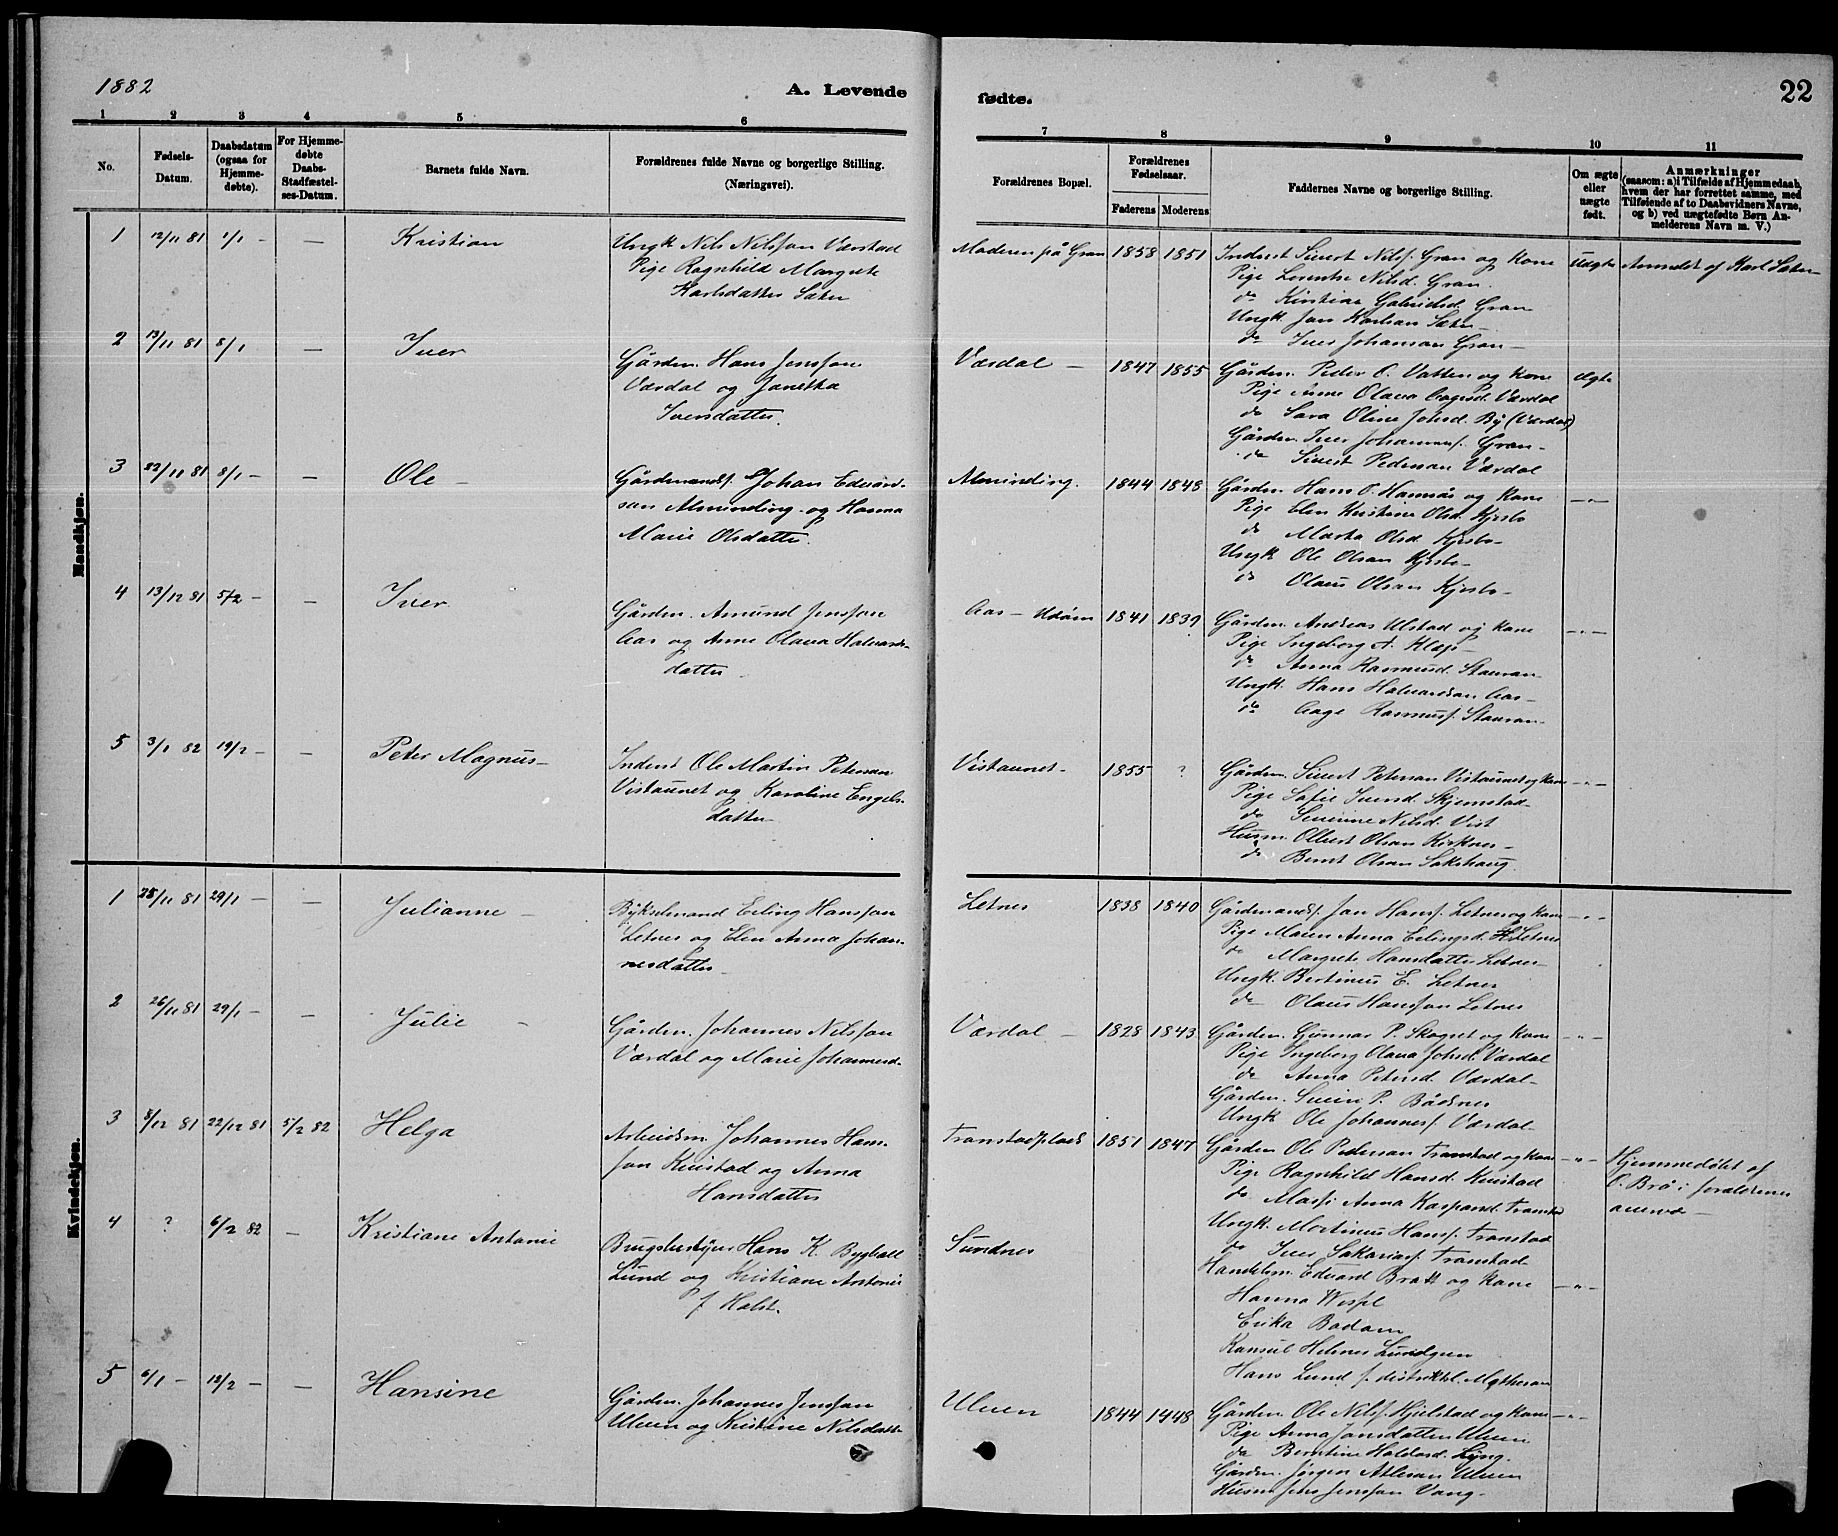 1882
A. Levende
fødte.
22
1 2 3 4 5 6 7 8 9 10 11
No.
Fødsels-Datum.
Daabsdatum (ogsaa for Hjemmedøbte).
For Hjemmedøbte Daabs-Stadfæstelses-Datum.
Barnets fulde Navn.
Forældrenes fulde Navne og borgerlige Stilling. (Næringsvei).
Forældrenes Bopæl.
Forældrenes Fødselsaar.
Faderens Moderens
Faddernes Navne og borgerlige Stilling.
Om ægte eller uægte født.
Anmærkninger
(saasom: a) i Tilfælde af Hjemmedaab, hvem der har forrettet samme, med Tilføiende af to Daabsvidners Navne, og b) ved uægtefødte Børn Anmelderens Navn m. V.)
Mandkjøn.
1 12/11 81 1/1 – – Kristian
Ungk Nils Nilsson Værstad
Pige Ragnhild Margrete
Karlsdatter Sæter
Maderen på Gran 1858 1851
Inderst Sivert Nilsf. Gran og kone
Pige Lorentse Nilsd. Gran.
do Kirstine Gabrielsd. Gran
Ungk. Jon Karlsan Sæter
do Iver Johansan Gran –
Uægte
Anmeldt af Karl Sæter
2 13/11 81 8/1 – Iver
Gårdm. Hans Jensson
Værdal og Janetha
Iversdatter.
Værdal – 1847 1855
Gårdm. Peder O. Vatten og kone
Pige Anne Olava Aagesd. Værdal
do Sara Oline Johsd. By (Værdal)
Gårdm. Iver Johannesf. Gran –
do Sivert Pedersan Værdal
Ægte
3 22/11 81 8/1 – – Ole –
Gårdmandsf. Johan Edvard-
san Alminding og Hanna
Marie Olsdatter.
Alminding. 1844 1848
Gårdm. Hans O. Hamnås og kone
Pige Elen Kristine Olsd. Kjesbo
do Marta Olsd Kjesbo –
Ungk Ole Olsan Kjesbo –
do Olaus Olsan Kjesbo –
– " –
4 13/12 81 5/2 – – Iver
Gårdm. Amund Jensson
Aas og Anne Olava Halvards-
datter
Aas – Udøen 1841 1839
Gårdm. Andreas Ulstad og kone
Pige Ingeborg A. Klæp –
do Anna Rasmusd. Stavran
Ungk. Hans Halvardsan Aas –
do Aage Rasmusf. Stavran –
– " –
5 3/1 82 19/2 – – Peter Magnus –
Inderst Ole Martin Petersan
Vistaunet og Karoline Engels-
datter –
Vistaunet – 1855 ?
Gårdm. Sivert Petersan Vistaunet og kone
Pige Sofie Iversd. Skjemstad –
do Severine Nilsd. Vist
Husm. Ollert Olsan Kirknes –
do Bernt Olsan Sakshaug.
– " –
Kvindekjøn.
1 25/11 81 29/1 – – Julianne –
Bykselmand Erling Hansson
Letnes og Elen Anna Johan-
nesdatter –
Letnes 1838 1840
Gårdmandsf. Jon Hansf. Letnes og kone
Pige Maren Anna Erlingsd. Letnes
do Margrete Hansdatter Letnes –
Ungk. Bertinus E. Letnes
do Olaus Hansson Letnes
– " –
2 26/11 81 29/1 – – Julie –
Gårdm. Johannes Nilsson
Værdal og Marie Johannesd.
Værdal – 1828 1843
Gårdm. Gunnar P. Skognt og kone
Pige Ingeborg Olava Johsd. Værdal
do Anna Petersd. Værdal –
Gårdm. Svein P. Bådsnes
Ungk Ole Johannesf. Værdal –
– " –
3 8/12 81 22/12 81 5/2 82 Helga
Arbeidsm. Johannes Hans-
son Kvistad og Anna
Hansdatter
Tronstadplads 1851 1847
Gårdm Ole Pedersan Tronstad og kone
Pige Ragnhild Hansd. Kvistad
do Massi Anna Kaspersd. Tronstad
Ungk. Martinus Hansf. Tronstad
do Iver Sakariasf. Tronstad
– " –
Hjemmedøbt af
O. Brå i forældrenes
nærvær –
4 ? 6/2 82 – Kristiane Antonie
Brugsbestyrer Hans K. Bygball
Lund og Kristiane Antonie
f Holst.
Sundnes
Handelsm. Edvard Bratt og kone
Hanna Wessel
Erika Badam
Konsul Helmer Lundgren
Hans Lund f. distriktsl. Matheson
– " –
5 6/1 – 12/2 – – Hansine
Gårdm. Johannes Jensson
Ulven og Kristine Nilsdatter
Ulven 1844 1448
Gårdm. Ole Nilsf. Hjelstad og kone
Pige Anna Jonsdatter Ulven
do Berntine Haldosd. Lyng.
Gårdm. Jørgen Atlesan Ulven
Husm Jens Jensson Vang –
– " –